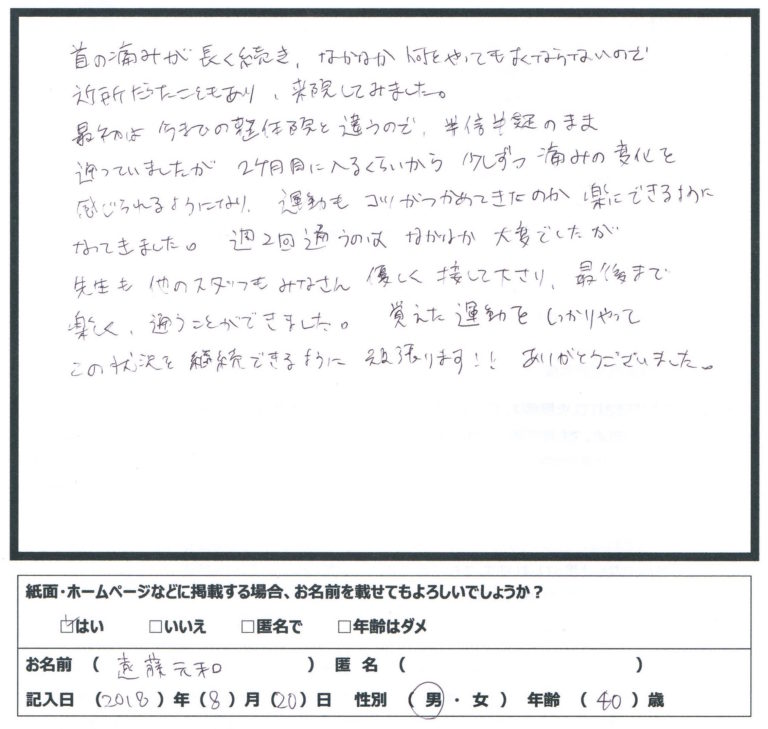 首の痛みが長く続き、なかなか何をやってもよくならないので
近所だったこともあり、来院してみました。
最初は今までの整体院と違うので、半信半疑のまま
通っていましたが 2ケ月目に入るくらいから 少しずつ痛みの変化を
感じられるようになり、運動もコツがつかめてきたのか楽にできるように
なってきました。週2回通うのは なかなか 大変でしたが
先生も他のスタッフもみなさん優しく接して下さり、最後まで
楽しく、通うことができました。覚えた運動をしっかりやって
この状況を継続できるように頑張ります!! ありがとうございました。
紙面・ホームページなどに掲載する場合、お名前を載せてもよろしいでしょうか？
☑はい □いいえ □匿名で □年齢はダメ
お名前 （ 遠藤元和 ） 匿 名 （ ）
記入日 （2018）年（8）月（20）日 性別 （ 男 ・ 女 ） 年齢 （ 40 ）歳